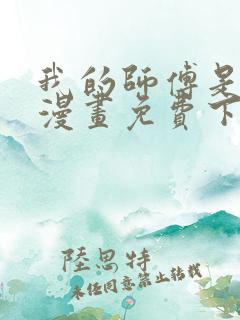 我的師傅是
漫畫免費下
陸思特
未经同意禁止转载